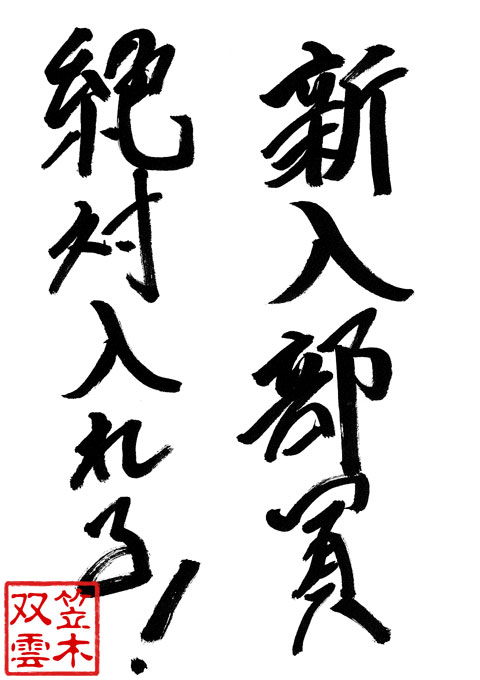 新入部員
絶対入れる!
笠木
双雲